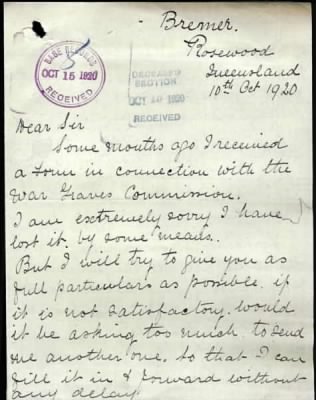 Bremer.
Rosewood
Queensland
10th Oct 1920
BASE RECORDS
OCT 15 1920
RECEIVED
DECEASED
SECTION
OCT 1920
RECEIVED
Dear Sir
Some months ago I received
a form in connection with the
War Graves Commission.
I am extremely sorry I have
lost it. by some means.
But I will try to give you as
full particulars as possible. if
it is not satisfactory. would
it be asking too much. to send
me another one. so that I can
fill it in & forward without
any delay